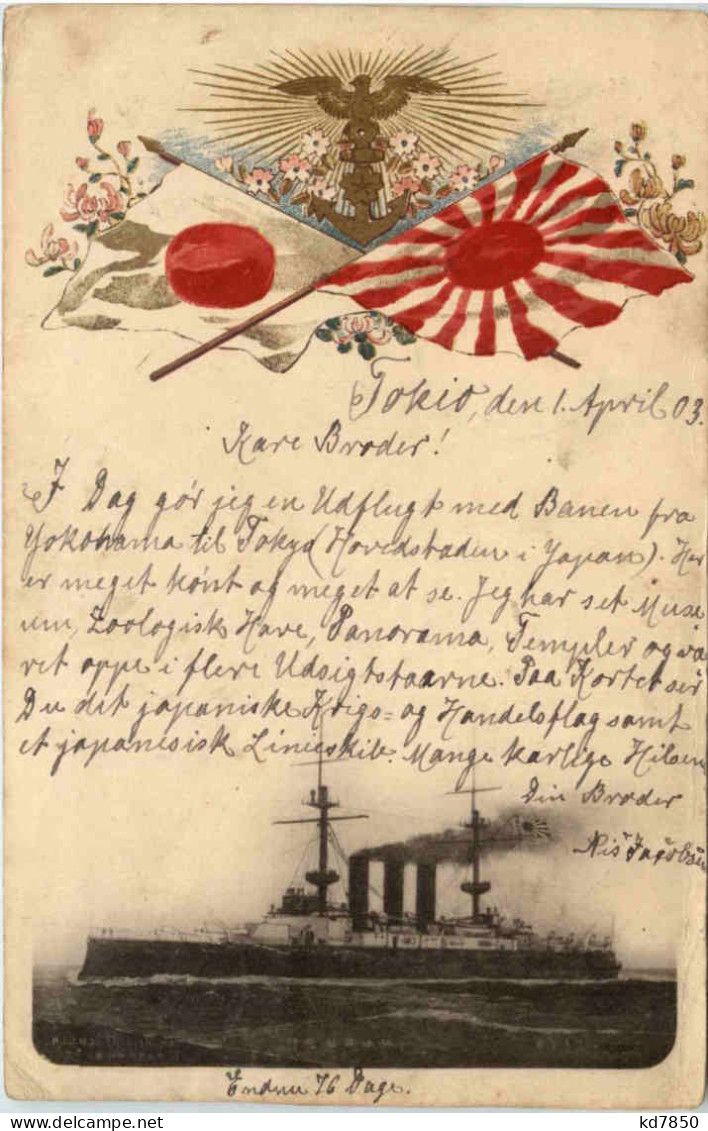 Tokio, den 1. April 03.
Kære Broder!
I Dag gör jeg en Udflugt med Banen fra
Yokohama til Tokyo (Hovedstaden i Japan). Her
er meget könt og meget at se. Jeg har set Muse
um, Zoologisk Have, Panorama, Templer og va
ret oppe i flere Udsigtstaarne. Paa Kortet ser
Du det japaniske Krigs= og Handelsflag samt
et japanesisk Linieskib. Mange kærlige Hilsen
Din Broder
Nis Jacobsen
Endnu 76 Dage.
kd7850